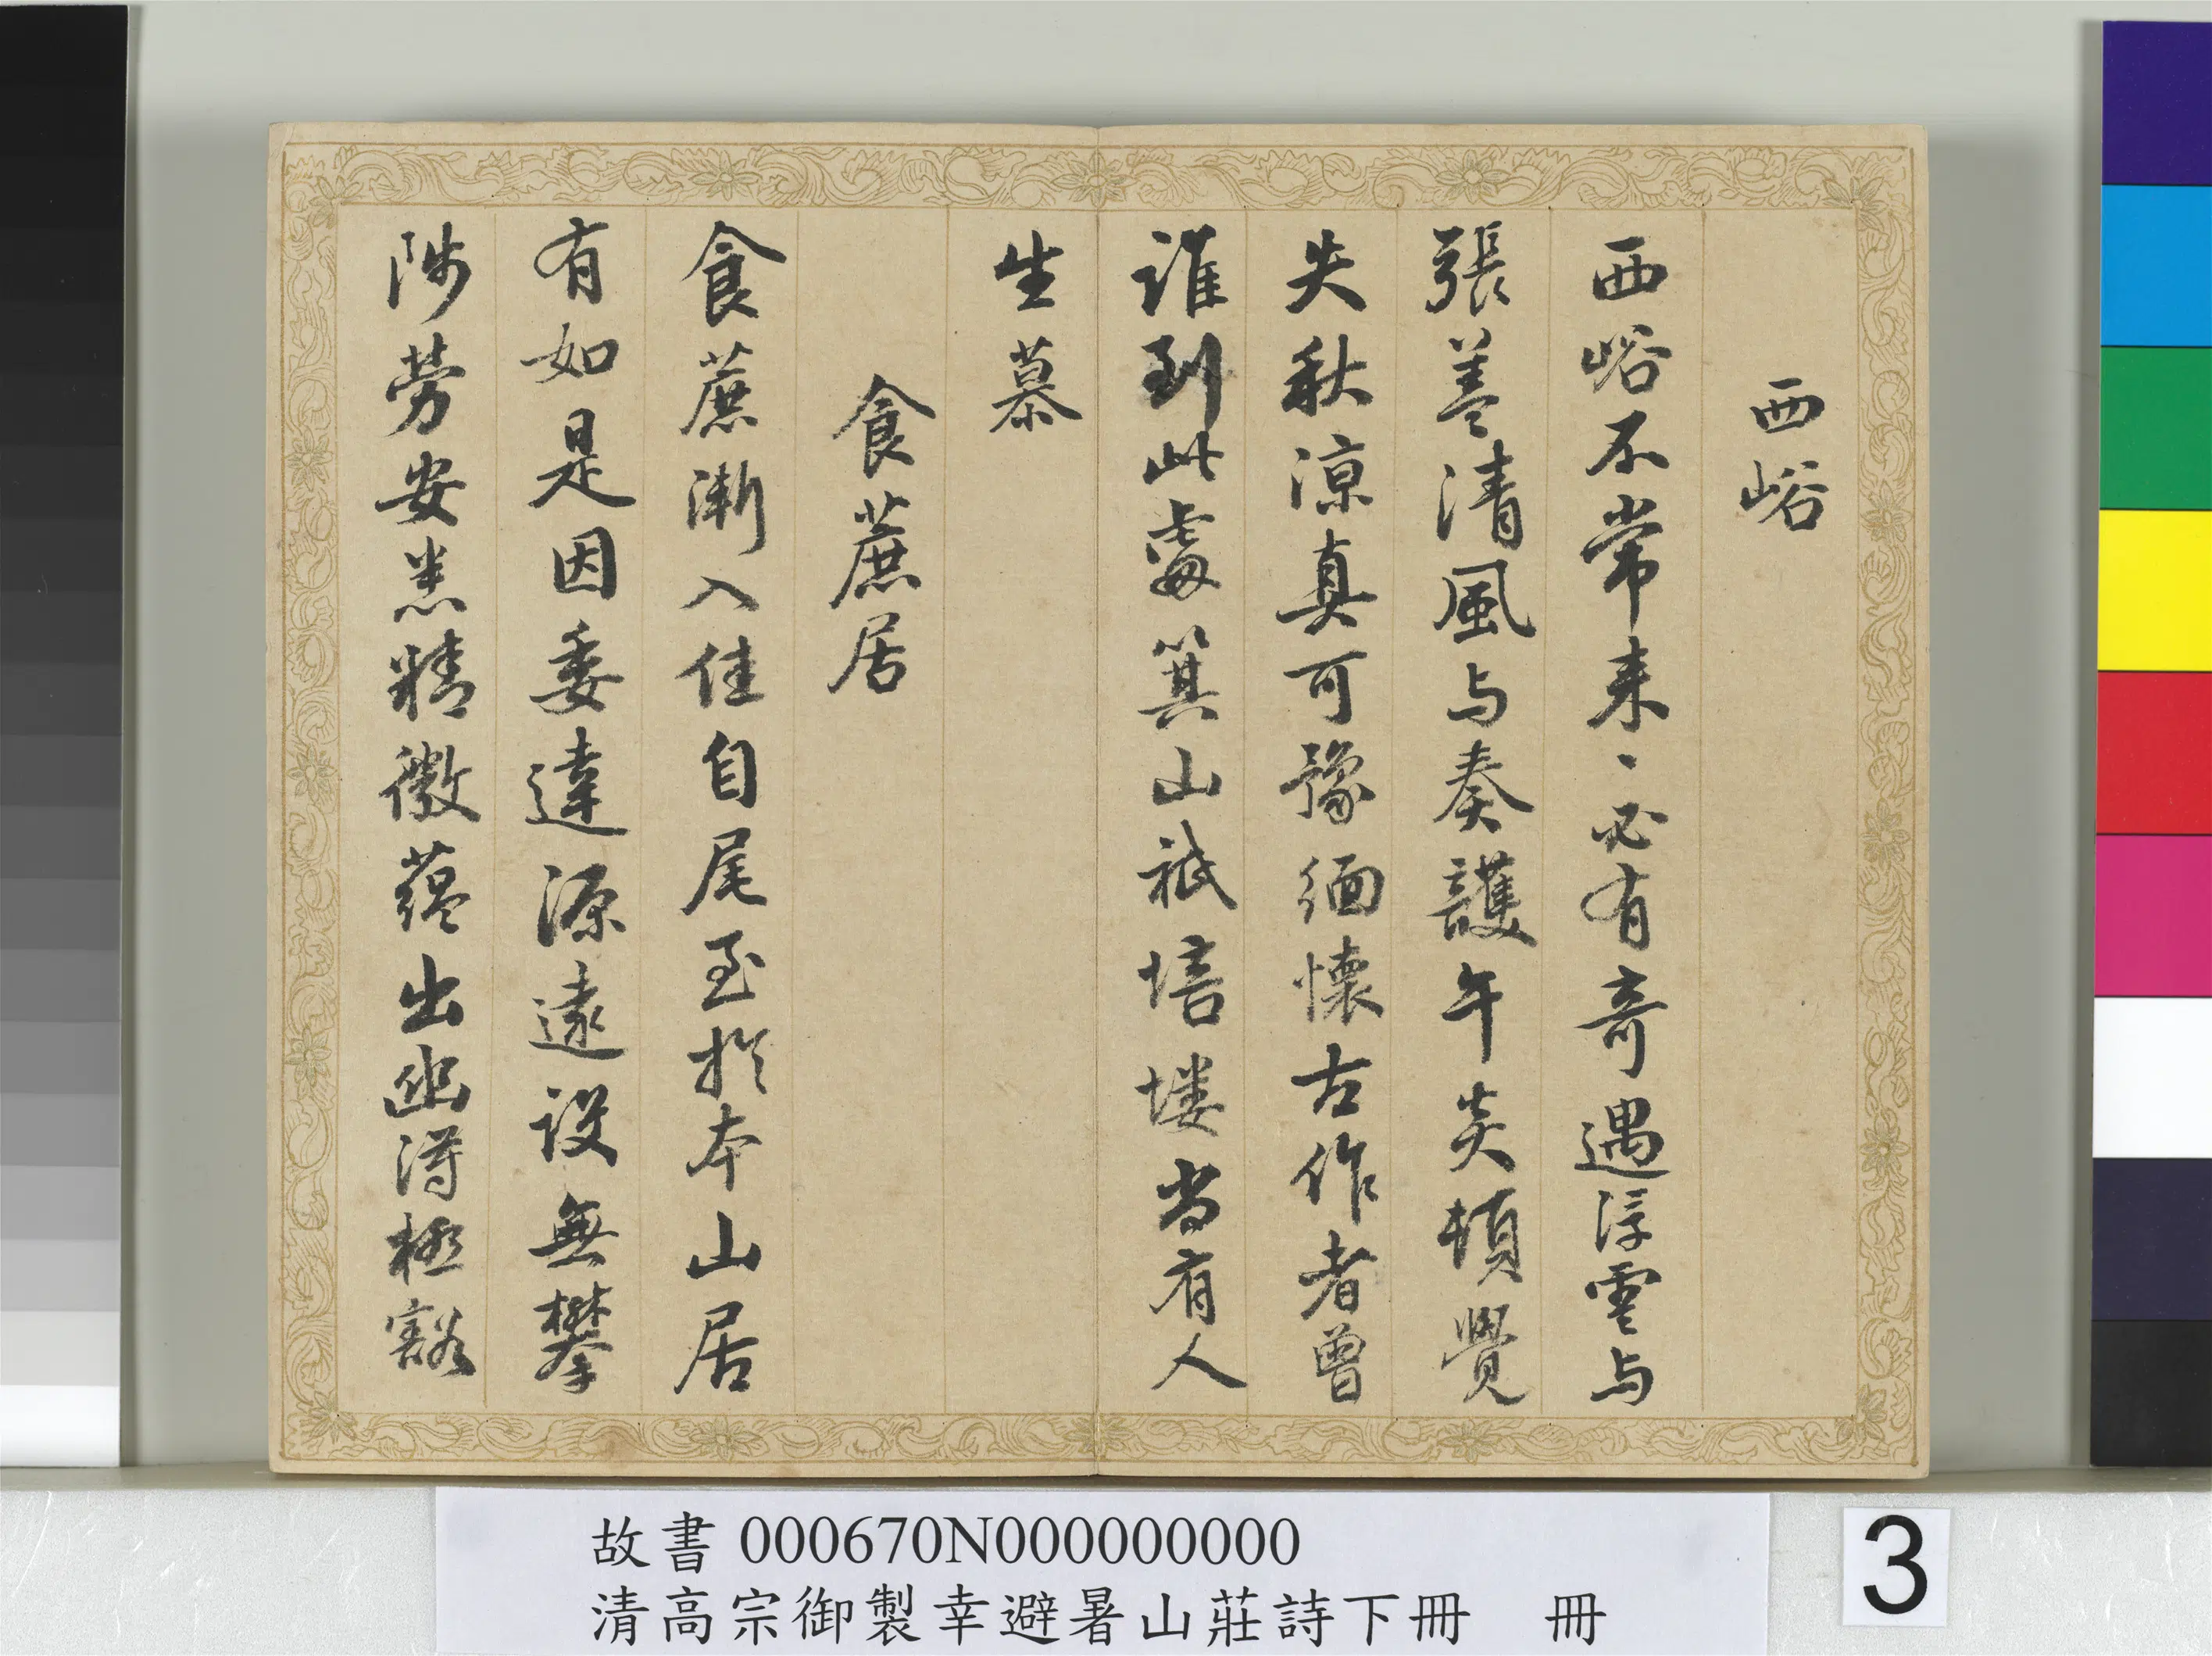 西峪
西峪不常来〻必有奇遇浮雲与
張蓋清風与奏護午炎頓覺
失秋涼真可豫緬懷古作者曾
誰到此處箕山祇培塿當有人
生慕
食蔗居
食蔗漸入佳自尾至於本山居
有如是因委達源遠設無攀
陟勞安悉精微蘊出幽得極豁
故書 000670N000000000
清高宗御製幸避暑山莊詩下冊 冊
3